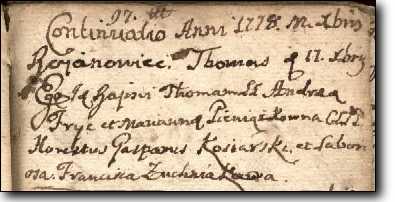 97.
Continuatio Anni 1778. M. Xbris
Rojanowice. Thomas d 17. Xbris
Ego Id Bapsi Thomam Andrea
Fryc et Marianna Pieniążkowna
Honestus Gasparus Kosiarski, et Labor
osa. Francisca Zuchniakowa.